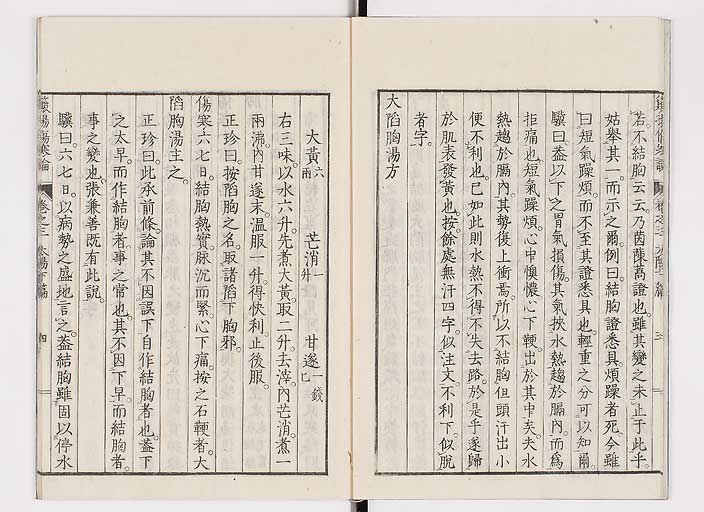 若不結胸云云乃茵蔯蒿證也雖其變之未止于此乎
姑舉其一而示之爾例曰結胸證悉具煩躁者死今雖
曰短氣躁煩而不至其證悉具也輕重之分可以知爾
驥曰蓋以下之胃氣損傷其氣挾水熱趨於膈內而爲
拒痛也短氣躁煩心中懊憹心下鞕出於其中矣夫水
熱趨於膈內其勢復上衝焉所以不結胸但頭汗出小
便不利也已如此則水熱不得不失去路於是乎遂歸
於肌表發黃也按餘處無汗四字似注文不利下似脫
者字
大陷胸湯方
大黃六兩 芒消一升 甘遂一錢匕
右三味以水六升先煮大黃取二升去滓內芒消煮一
兩沸內甘遂末溫服一升得快利止後服
正珍曰按陷胸之名取諸陷下胸邪
傷寒六七日結胸熱實脉沉而緊心下痛按之石鞕者大
陷胸湯主之
正珍曰此承前條論其不因誤下自作結胸者也蓋下
之太早而作結胸者事之常也其不因下早而結胸者
事之變也張兼善既有此說
驥曰六七日以病勢之盛地言之蓋結胸雖固以停水
傷寒論 卷之三 太陽下篇 四